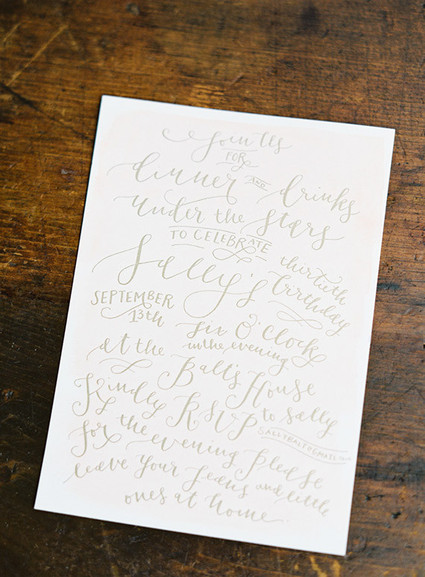 Join Us
FOR
dinner AND drinks
under the stars
TO CELEBRATE
Sally's thirtieth Birthday
SEPTEMBER 13th
six O'Clock in the evening
at the Balt's House
Kindly RSVP to Sally
for the evening please
leave your jeans and little
ones at home